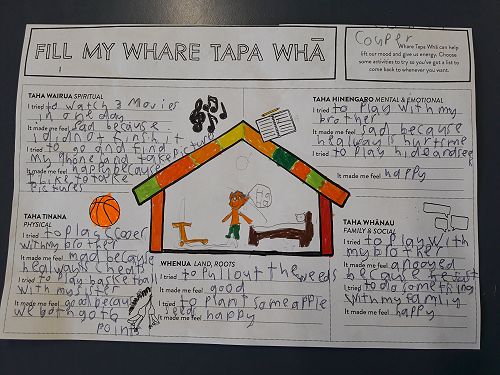 FILL MY WHARE TAPA WHĀ
Couper
Whare Tapa Whā can help
lift our mood and give us energy. Choose
some activities to try so you've got a list to
come back to whenever you want.
TAHA WAIRUA SPIRITUAL
I tried to watch 3 Movies
in one day
It made me feel sad because
i didnt finish it
I tried to go and find
my phone and take picture
It made me feel happy because
I like to take
pictures
TAHA HINENGARO MENTAL & EMOTIONAL
I tried to play with my
brother
It made me feel sad because
he always hurts me
I tried to play hide and seek
It made me feel happy
TAHA TINANA
PHYSICAL
I tried to play soccer
with my brother
It made me feel mad because
he always cheats
I tried to play basketball
with my sister
It made me feel good because
we both got 6
points
WHENUA LAND, ROOTS
I tried to pull out the weeds
It made me feel good
I tried to plant some apple
seeds
It made me feel happy
TAHA WHĀNAU
FAMILY & SOCIAL
I tried to play with
my brother
It made me feel annoyed
because he
I tried to do something
with my family
It made me feel happy